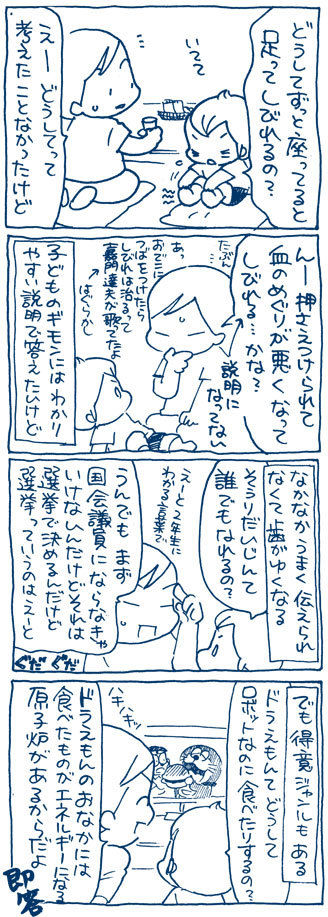 どうしてずっと座ってると
足ってしびれるの?
いてて
えー どうしてって
考えたことなかったけど
んー押さえつけられて
血のめぐりが悪くなって
しびれる…かな?
たぶん…
説明に
なってない
あっ
おでこに
つばをつけたら
しびれは治るって
嘉門達夫が歌ってたよ
はぐらかし
子どものギモンにはわかり
やすい説明で答えたいけど
なかなかうまく伝えられ
なくて歯がゆくなる
そうりだいじんて
誰でもなれるの?
えーと2年生に
わかる言葉で
うんでも まず
国会議員にならなきゃ
いけないんだけどそれは
選挙で決めるんだけど
選挙っていうのはえーと
ぐだ ぐだ
でも得意ジャンルもある
ドラえもんてどうして
ロボットなのに食べたりするの?
ハキハキッ
ドラえもんのおなかには
食べたものがエネルギーになる
原子炉があるからだよ
即答